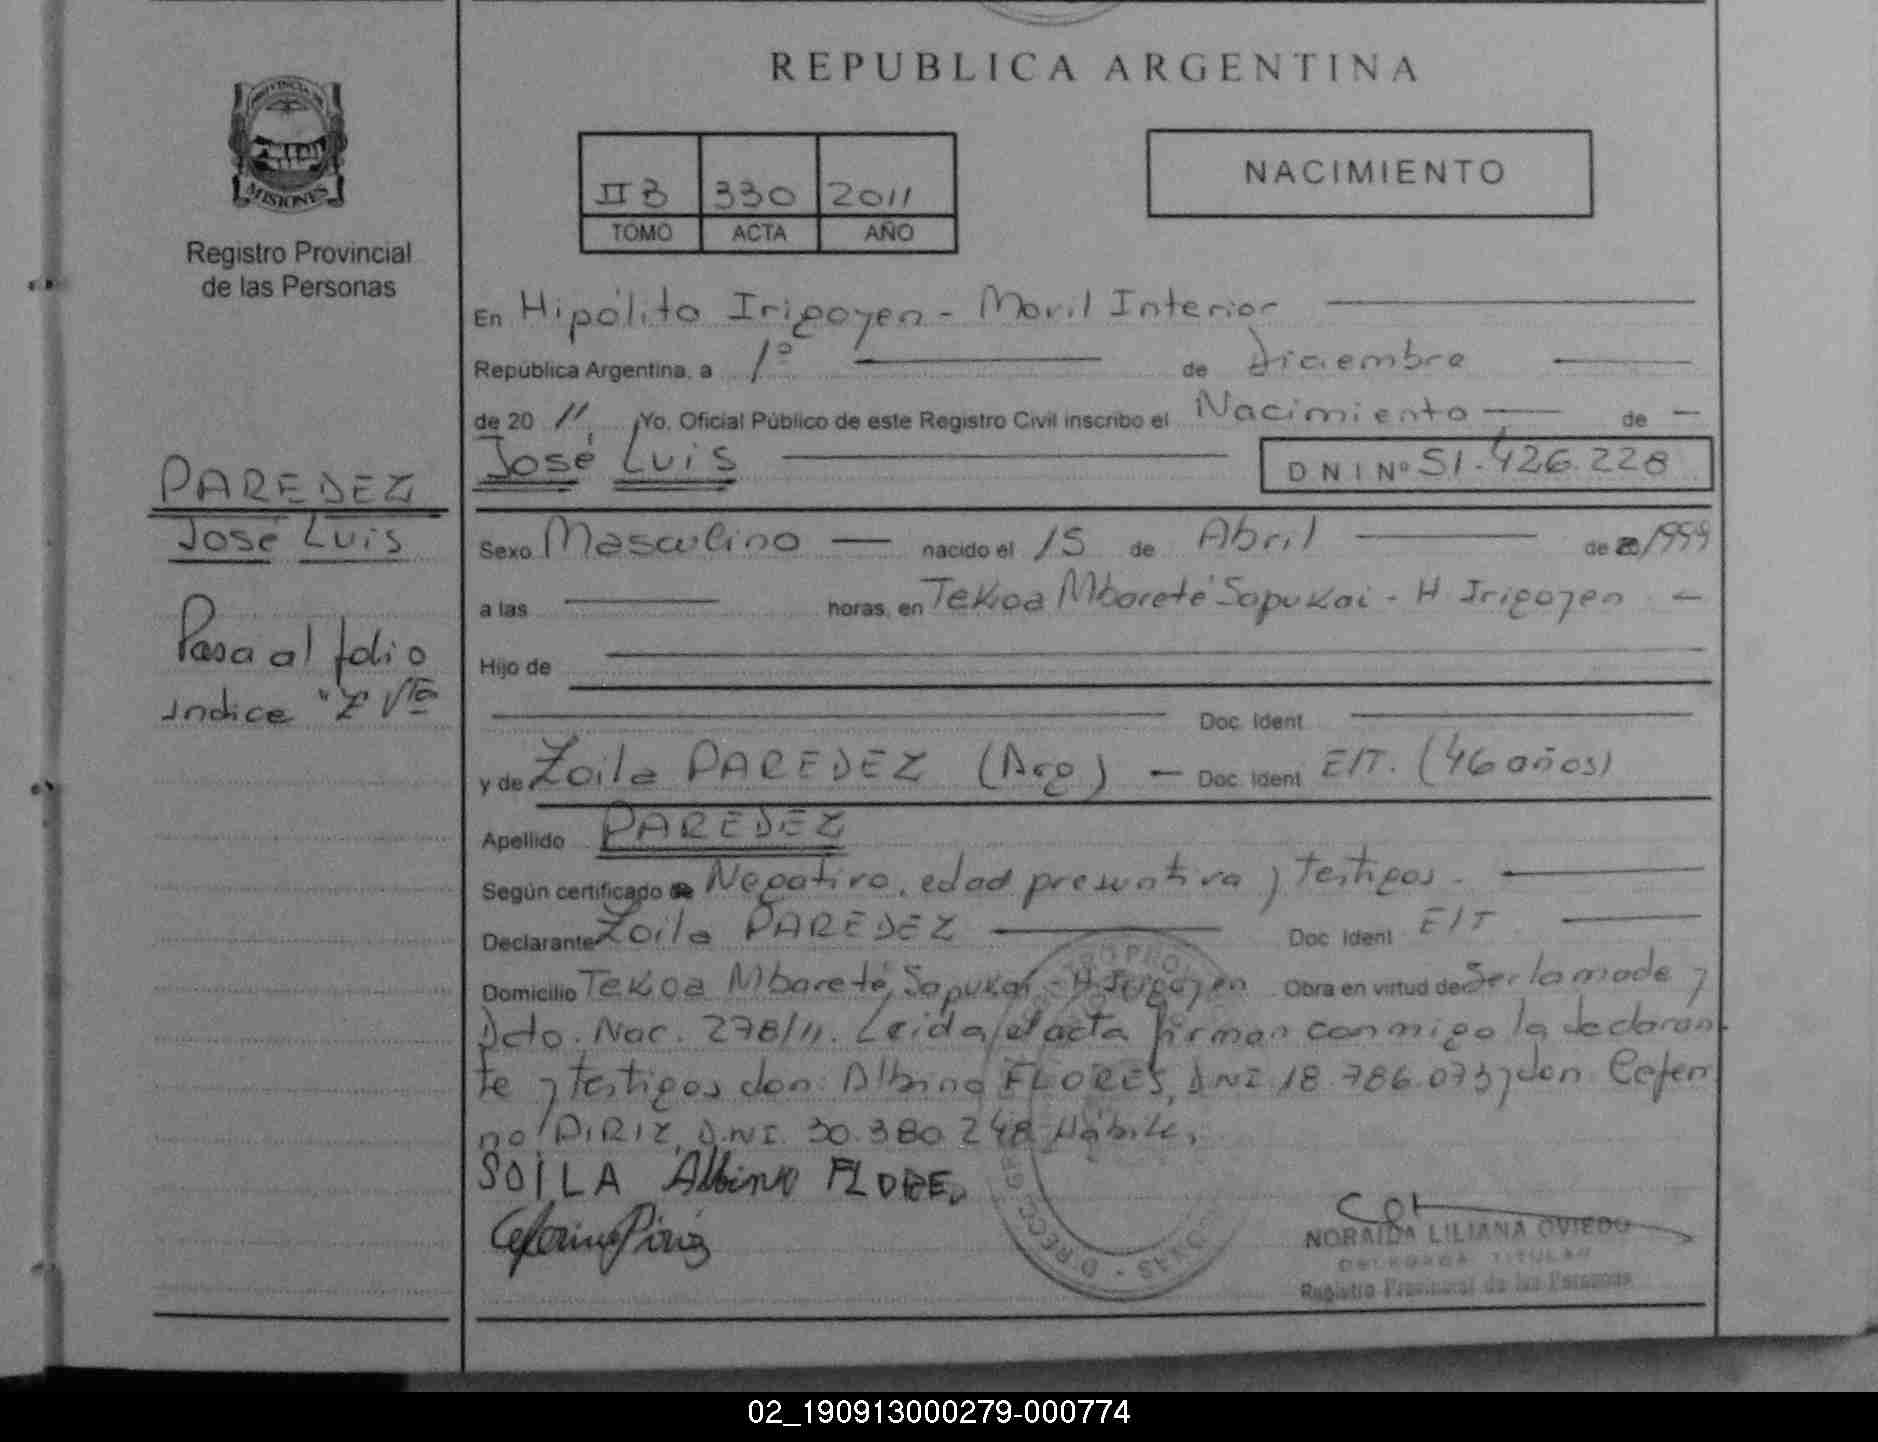 REPUBLICA ARGENTINA
MISIONES
Registro Provincial
de las Personas
II B 330 2011
TOMO ACTA AÑO
NACIMIENTO
En Hipólito Irigoyen - Movil Interior
República Argentina, a 1º de diciembre
de 20 11 Yo. Oficial Público de este Registro Civil inscribo el Nacimiento de
José Luis DNI Nº 51.426.228
PAREDEZ
José Luis
Pasa al folio
indice "Z" Vta
Sexo Masculino nacido el 15 de Abril de 1999
a las horas, en Tekoa Mbareté Sapukai - H Irigoyen
Hijo de
Doc. Ident
y de Zoila PAREDEZ (Arg) Doc. Ident E/T. (46 años)
Apellido PAREDEZ
Según certificado Negativo, edad presuntiva y testigos.
Declarante Zoila PAREDEZ Doc Ident E/T
Domicilio Tekoa Mbareté Sapukai - H Irigoyen Obra en virtud de Ser la madre y
Dcto. Nac. 278/11. Leida el acta firman conmigo la declaran
te y testigos don: Albino FLORES, DNI 18.786.073 y don Ceferi
no PIRIZ, D.N.I. 30.380.248 Hábiles,
SOILA Albino FLORE
Ceferino Piriz
NORAIDA LILIANA OVIEDO
DELEGADA TITULAR
Registro Provincial de las Personas
02_190913000279-000774